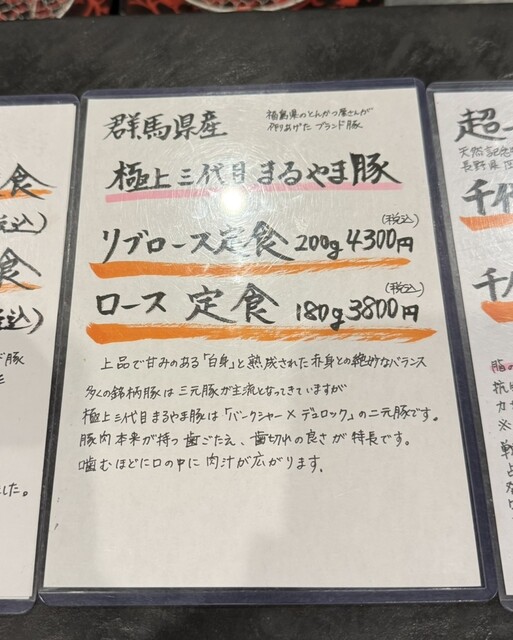 群馬県産
福島県のとんかつ屋さんが
作りあげた ブランド豚
極上三代目まるやま豚
(税込)
リブロース定食 200g 4300円
(税込)
ロース 定食 180g 3800円
上品で甘みのある「白身」と熟成された赤身との絶妙なバランス
多くの銘柄豚は三元豚が主流となってきていますが
極上三代目まるやま豚は「バークシャー×デュロック」の二元豚です。
豚肉本来が持つ歯ごたえ、歯切れの良さが特長です。
噛むほどに口の中に肉汁が広がります。
食
税込)
食
税込)
豚
した。
超
天然記念
長野県
千代
千
脂の
抗
カ
※
戦